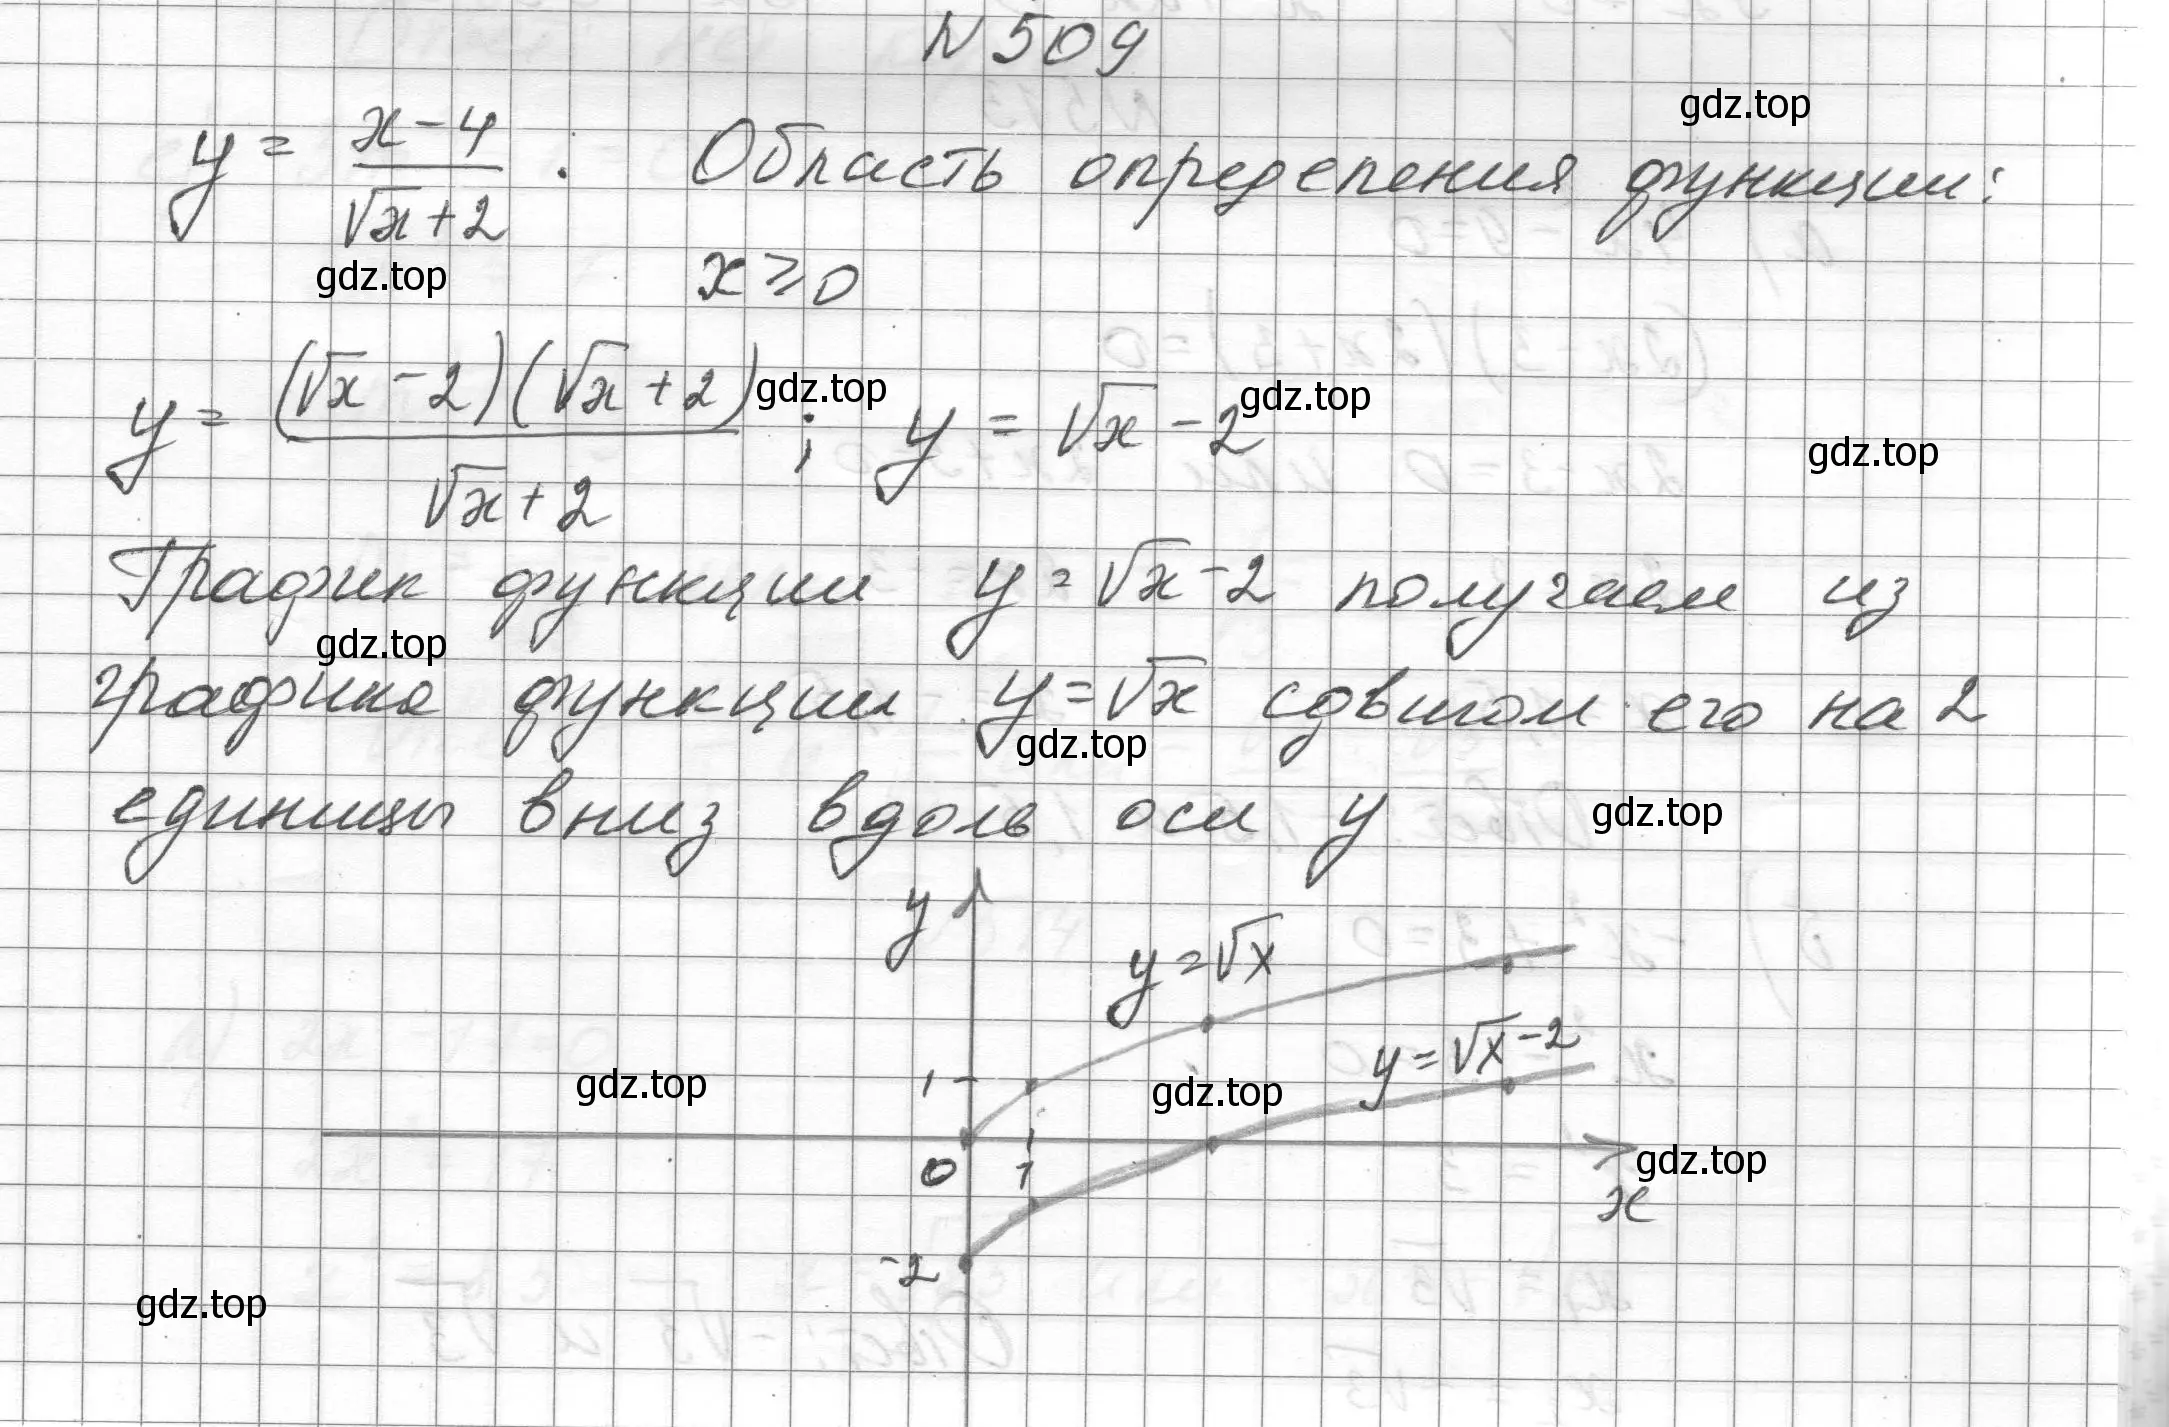 N 509
gdz.top
y = (x-4)/(√x+2) : Область определения функции:
gdz.top
x ≥ 0
y = ((√x-2)(√x+2))/(√x+2) ; y = √x-2
gdz.top gdz.top
gdz.top
График функции y=√x-2 получаем из
gdz.top
графика функции y=√x сдвигом его на 2
gdz.top
единицы вниз вдоль оси y
gdz.top
y
y=√x
y=√x-2
1
gdz.top
gdz.top
0 1
gdz.top
x
-2
gdz.top